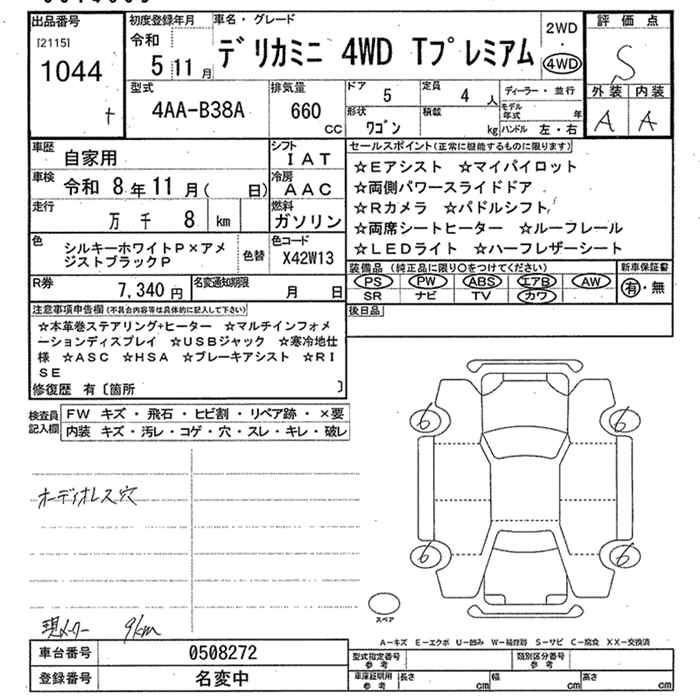 出品番号
[2115]
1044
初度登録年月
令和
5 11 月
車名・グレード
デリカミニ 4WD Tプレミアム
2WD
・
4WD
評価点
S
外装 内装
A A
型式
4AA-B38A
排気量
660
CC
ドア
5
定員
4 人
ディーラー・並行
モデル年式 年
形状
ワゴン
積載
kg
ハンドル 左・右
車歴
自家用
シフト
IAT
車検
令和 8 年 11 月( 日)
冷房
AAC
走行
万 千 8 km
燃料
ガソリン
色
シルキーホワイトP×アメ
ジストブラックP
色替
色コード
X42W13
R券
7,340 円
名変通知期限
月 日
セールスポイント(正常に機能するものに限ります)
☆Eアシスト ☆マイパイロット
☆両側パワースライドドア
☆Rカメラ ☆パドルシフト
☆両席シートヒーター ☆ルーフレール
☆LEDライト ☆ハーフレザーシート
装備品 (純正品に限り○をつけてください)
PS PW ABS エアB AW
SR ナビ TV カワ
新車保証書
有・無
後日品
注意事項申告欄(不具合内容等は具体的に記入して下さい)
☆本革巻ステアリング+ヒーター ☆マルチインフォメ
ーションディスプレイ ☆USBジャック ☆寒冷地仕
様 ☆ASC ☆HSA ☆ブレーキアシスト ☆RI
SE
修復歴 有〔箇所 〕
検査員
記入欄
FW キズ・飛石・ヒビ割・リペア跡・×要
内装 キズ・汚レ・コゲ・穴・スレ・キレ・破レ
オーディオレス穴
6 6
6 6
スペア
現メーター 9km
A-キズ E-エクボ U-凹み W-補修跡 S-サビ C-腐食 XX-交換済
車台番号
0508272
登録番号
名変中
型式指定番号
参考
類別区分番号
参考
車庫証明用
参考
長さ cm
幅 cm
高さ cm